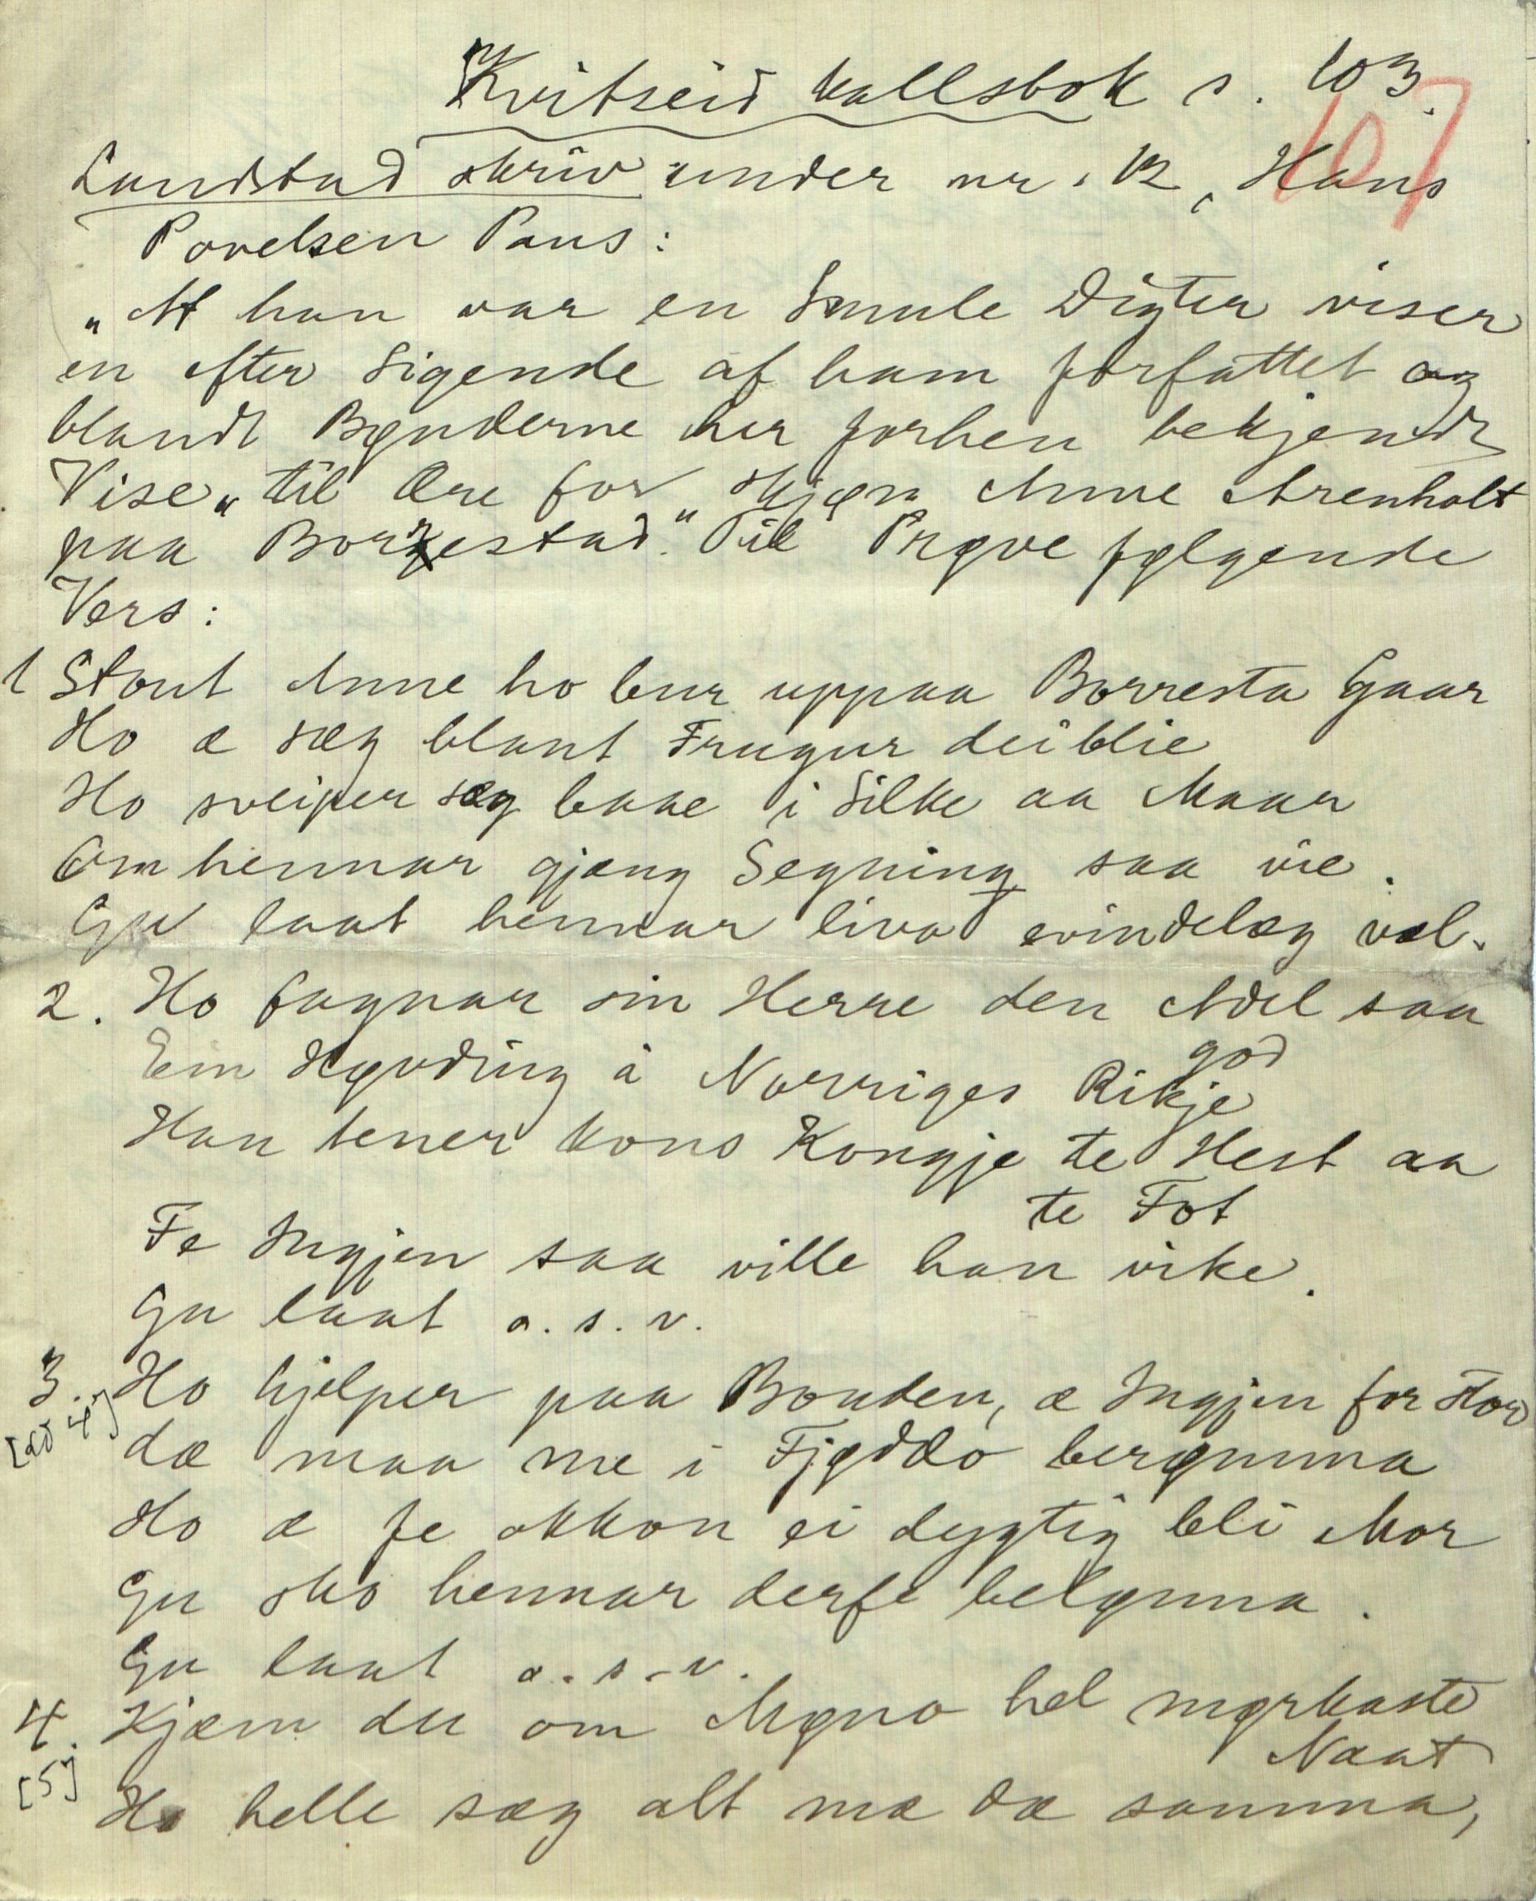 Kvitseid kallsbok s. 103.
107
Landstad skriv under nr. 12, Hans
Povelsen Paus:
"At han var en Smule Digter viser
en efter Sigende af ham forfattet og
blandt Bønderne her forhen bekjendt
Vise" til Ære for "skjøn Anne Arenholt
paa Borgestad." Til Prøve følgende
Vers:
1 Stout Anne ho bur uppaa Borresta Gaar
Ho æ sæg blant Frugur deiblie
Ho sveiper sæg baae i Silke aa Maar
Om hennar gjæng Segning saa vie.
Gu laat hennar liva evindelæg væl.
2. Ho fagnar sin Herre den Adel saa
god
Ein Høvding i Norriges Rikje
Han tener kons Kongje te Hest aa
te Fot
Fe Ingjen saa ville han vike.
Gu laat o. s. v.
3. Ho hjelper paa Bonden, æ Ingjen for Stor
[av 4]
dæ maa me i Fjøddo berømma
Ho æ fe okkon ei dygtig bli Mor
Gu sko hennar derfe belønna.
Gu laat o. s. v.
4. Kjæm du om Møno hel mørkaste
Naat
[5]
Ho helle sæg alt mæ dæ samma,